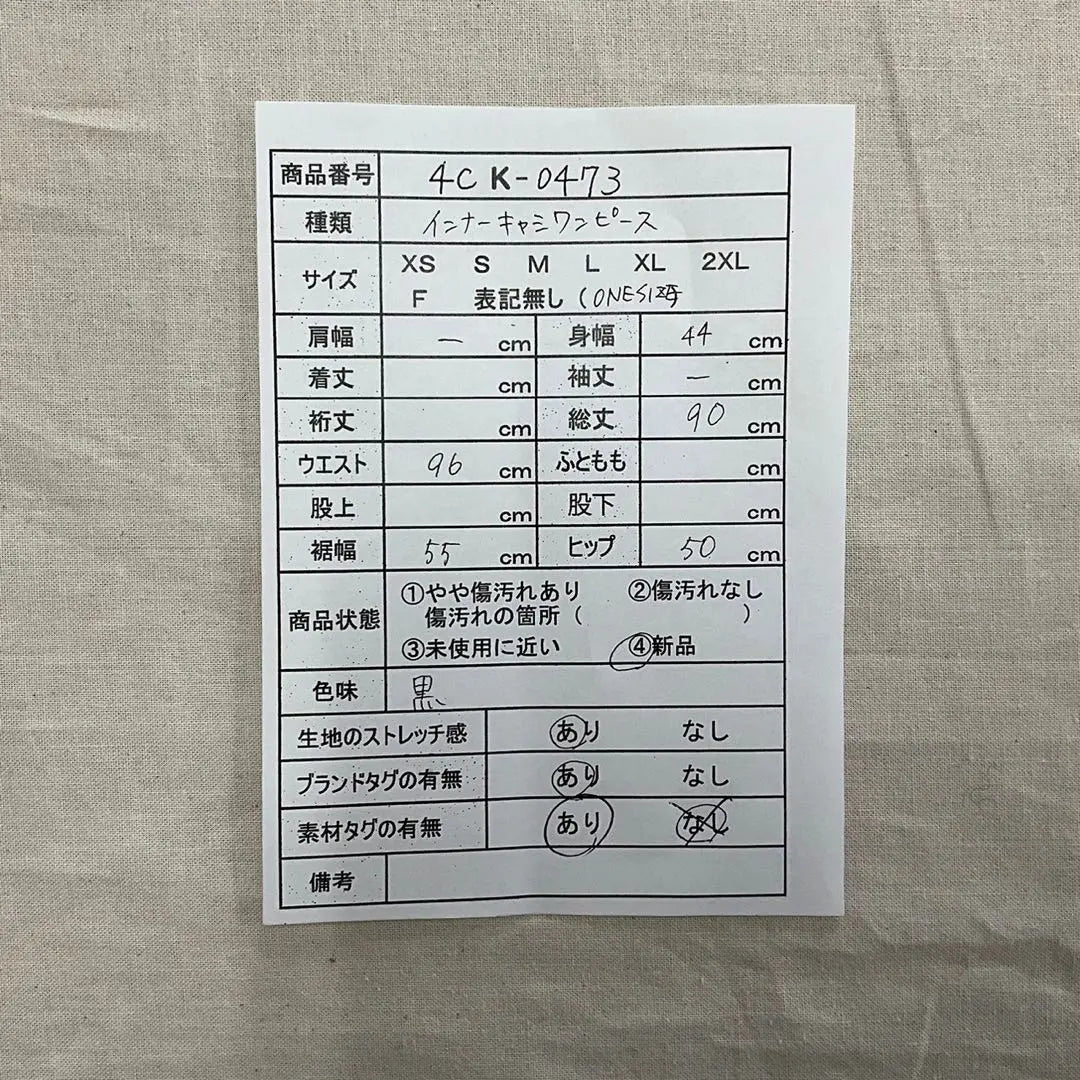 商品番号 4C K-0473
種類 インナーキャミワンピース
サイズ XS S M L XL 2XL
F 表記無し (ONESIZE
肩幅 ー cm 身幅 44 cm
着丈 cm 袖丈 ー cm
裄丈 cm 総丈 90 cm
ウエスト 96 cm ふともも cm
股上 cm 股下 cm
裾幅 55 cm ヒップ 50 cm
商品状態 ①やや傷汚れあり ②傷汚れなし
傷汚れの箇所( )
③未使用に近い ④新品
色味 黒
生地のストレッチ感 あり なし
ブランドタグの有無 あり なし
素材タグの有無 あり なし
備考